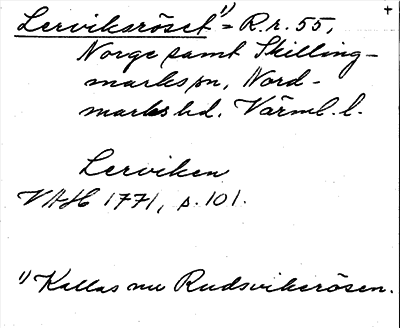 Lerviksröset ¹⁾ = R.r. 55,
Norge samt Skilling-
marks sn, Nord-
marks hd. Värml. l.
Lerviken
VAH 1771, s. 101.
¹⁾ Kallas nu Rudsviksrösen.